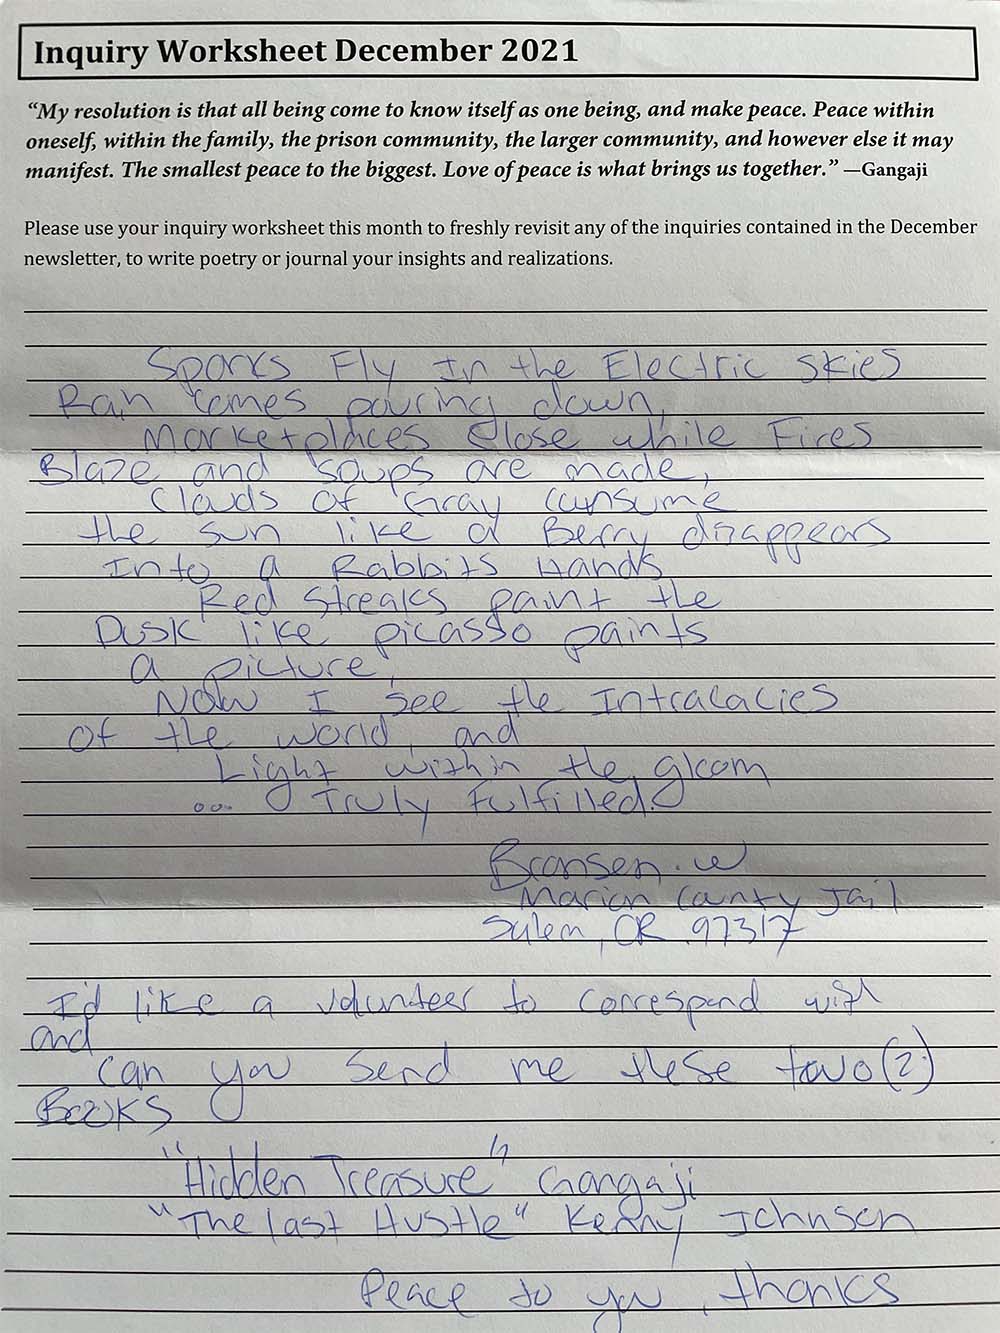 Inquiry Worksheet December 2021
“My resolution is that all being come to know itself as one being, and make peace. Peace within
oneself, within the family, the prison community, the larger community, and however else it may
manifest. The smallest peace to the biggest. Love of peace is what brings us together.” —Gangaji
Please use your inquiry worksheet this month to freshly revisit any of the inquiries contained in the December
newsletter, to write poetry or journal your insights and realizations.
Sparks Fly In the Electric Skies
Rain comes pouring down,
Marketplaces Close while Fires
Blaze and soups are made,
Clouds of Gray consume
the sun like a Berry disappears
Into a Rabbits Hands
Red streaks paint the
Dusk like picasso paints
a picture,
Now I see the Intracacies
of the world, and
Light within the gloom
... Truly Fulfilled.
Bronsen. W
Marion County Jail
Salem, OR. 97317
I'd like a volunteer to correspond with
and
can you send me these two (2)
Books
"Hidden Treasure" Gangaji
"The last Hustle" Kenny Johnson
Peace to you, thanks